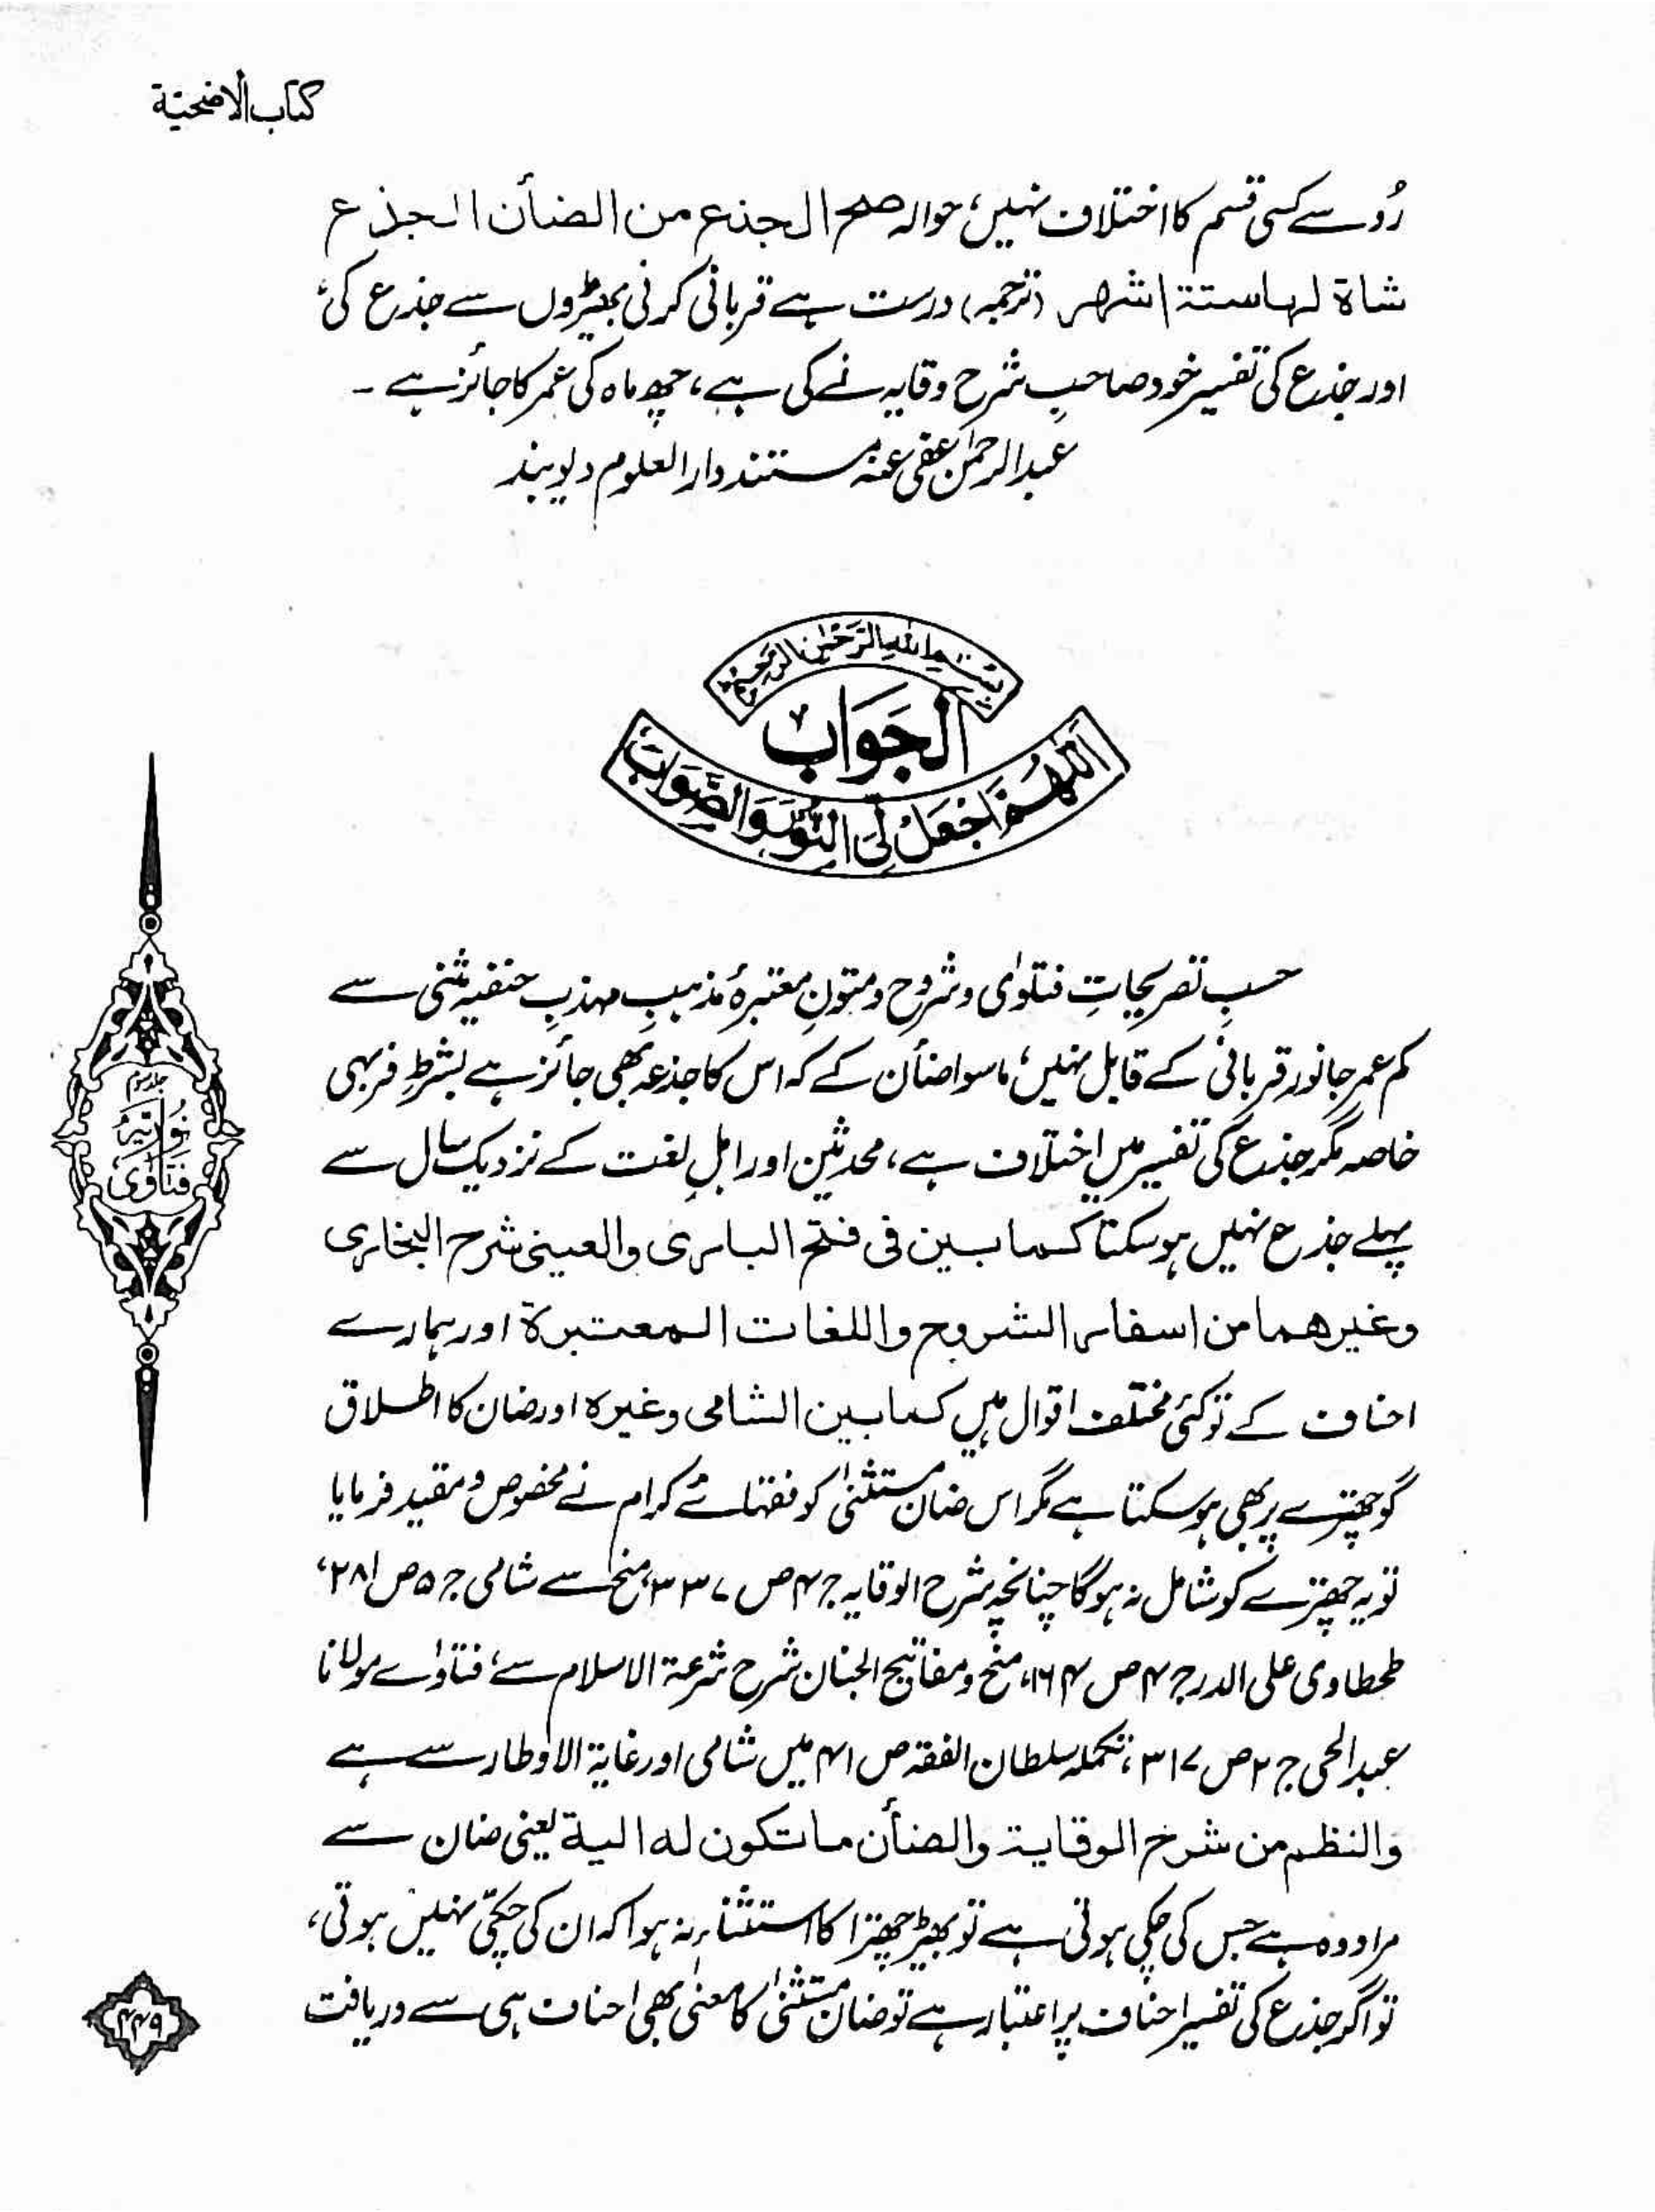 کتاب الاضحیّة
رُو سے کسی قسم کا اختلاف نہیں، حوالہ صح الجذع من الضأن الجذع
شاة لها ستة اشهر (ترجمہ) درست ہے قربانی کرنی بھیڑوں سے جذع کی،
اور جذع کی تفسیر خود صاحبِ شرح وقایہ نے کی ہے، چھ ماہ کی عمر کا جائز ہے ۔
عبدالرحمٰن عفی عنہ مستند دارالعلوم دیوبند
بِسْمِ اللهِ الرَّحْمٰنِ الرَّحِيْمِ
الْجَوَابُ
اَللّٰهُمَّ اجْعَلْ لِّیَ النُّوْرَ وَالصَّوَابَ
حسبِ تصریحاتِ فتاوٰی و شروح و متونِ معتبرۂ مذہبِ مہذبِ حنفیہ ثنی سے
کم عمر جانور قربانی کے قابل نہیں، ماسوا ضأن کے کہ اس کا جذعہ بھی جائز ہے بشرطِ فربہی
خاصہ مگر جذع کی تفسیر میں اختلاف ہے، محدثین اور اہلِ لغت کے نزدیک سال سے
پہلے جذع نہیں ہو سکتا کما بین فی فتح الباری والعینی شرح البخاری
وغیرهما من اسفار الشروح واللغات المعتبرة اور ہمارے
احناف کے تو کئی مختلف اقوال ہیں کما بین الشامی وغیرہ اور ضان کا اطلاق
گو چھترے پر بھی ہو سکتا ہے مگر اس ضان مستثنیٰ کو فقہائے کرام نے مخصوص و مقید فرمایا
تو یہ چھترے کو شامل نہ ہوگا چنانچہ شرح الوقایہ ج ۴ ص ۳۳۷، منح سے شامی ج ۵ ص ۲۸۱،
طحطاوی علی الدر ج ۴ ص ۱۶۴، منح و مفاتیح الجنان شرح شرعۃ الاسلام سے، فتاوٰے مولانا
عبدالحی ج ۲ ص ۳۱۷، تکملہ سلطان الفقہ ص ۴۱ میں شامی اور غایۃ الاوطار سے ہے
والنظم من شرح الوقایة والضأن ما تکون له الیة یعنی ضان سے
مراد وہ ہے جس کی چکی ہوتی ہے تو بھیڑ چھترا کا استثناء نہ ہوا کہ ان کی چکّی نہیں ہوتی،
تو اگر جذع کی تفسیر احناف پر اعتبار ہے تو ضان مستثنیٰ کا معنیٰ بھی احناف ہی سے دریافت
جلد سوم
فتاوٰی
نوریہ
۴۴۹